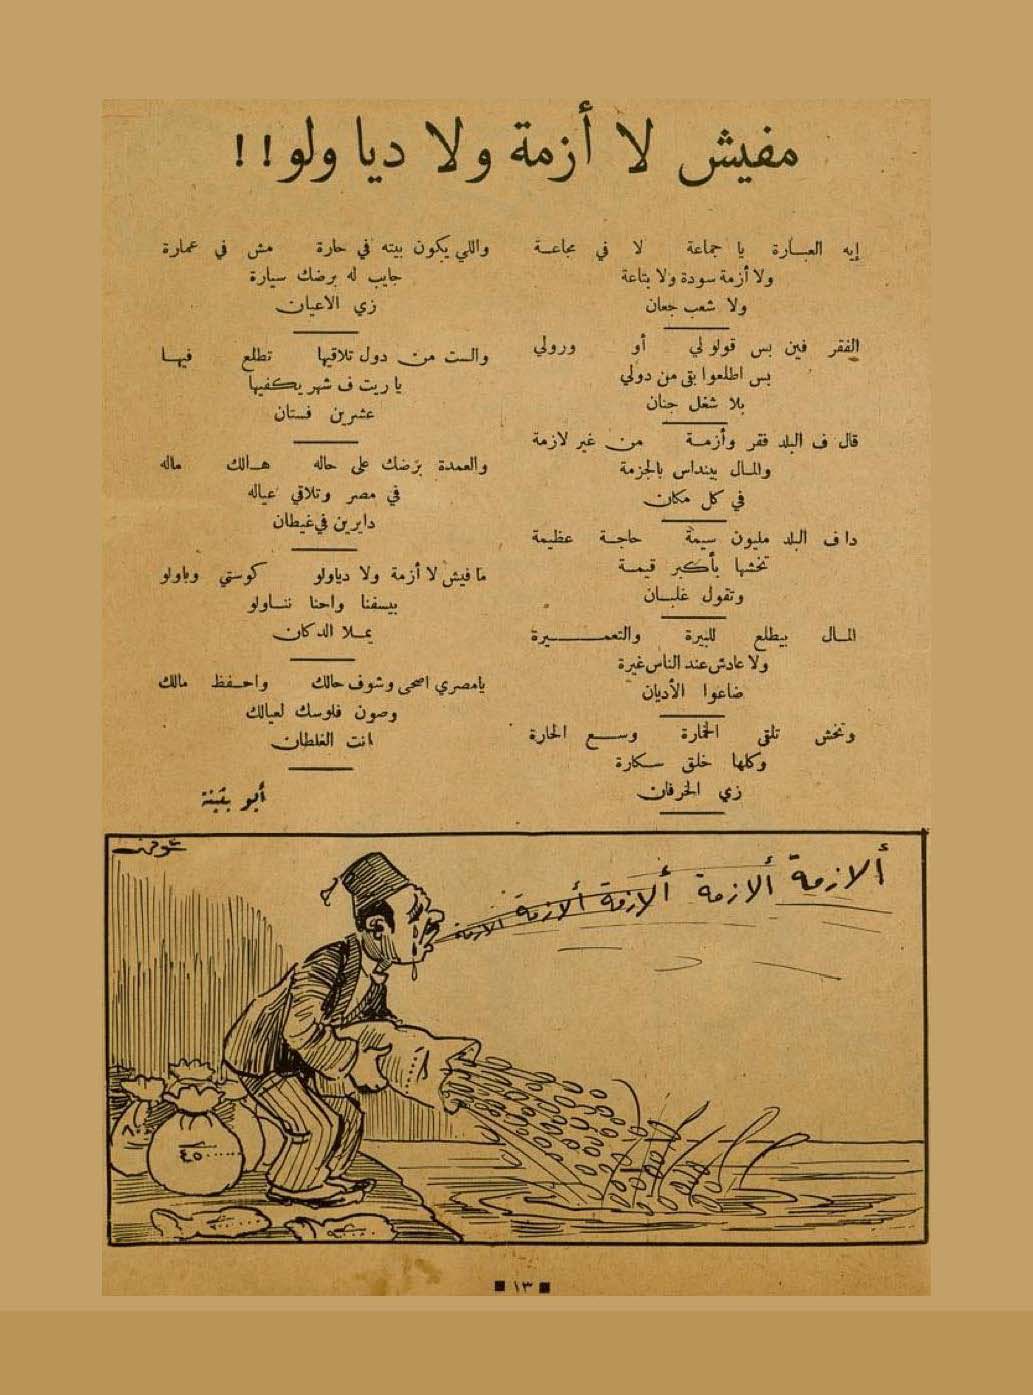 مفيش لا أزمة ولا ديا ولو !!
إيه العبارة يا جماعة لا في مجاعة
ولا أزمة سودة ولا بتاعة
ولا شعب جعان
الفقر فين بس قولو لي أو ورولي
بس اطلعوا بقى من دولي
بلا شغل جنان
قال ف البلد فقر وأزمة من غير لازمة
والمال بينداس بالجزمة
في كل مكان
دا ف البلد مليون سيمة حاجة عظيمة
تخشها بأكبر قيمة
وتقول غلبان
المال بيطلع للبيرة والتعميرة
ولا عادش عند الناس غيرة
ضاعوا الأديان
وتخش تلقى الخمارة وسع الحارة
وكلها خلق سكارة
زي الخرفان
واللي يكون بيته في حارة مش في عمارة
جايب له برضك سيارة
زي الاعيان
والست من دول تلاقيها تطلع فيها
يا ريت ف شهر يكفيها
عشرين فستان
والعمدة برضك على حاله هالك ماله
في مصر وتلاقي عياله
دايرين في غيطان
ما فيش لا أزمة ولا دياولو كوستي وباولو
بيسفنا واحنا نناولو
يملا الدكان
يامصري اصحى وشوف حالك واحفظ مالك
وصون فلوسك لعيالك
انت الغلطان
أبو بثينة
شوقي
ألازمة ألازمة ألازمة ألازمة الازمة
٤٥٠
١٣